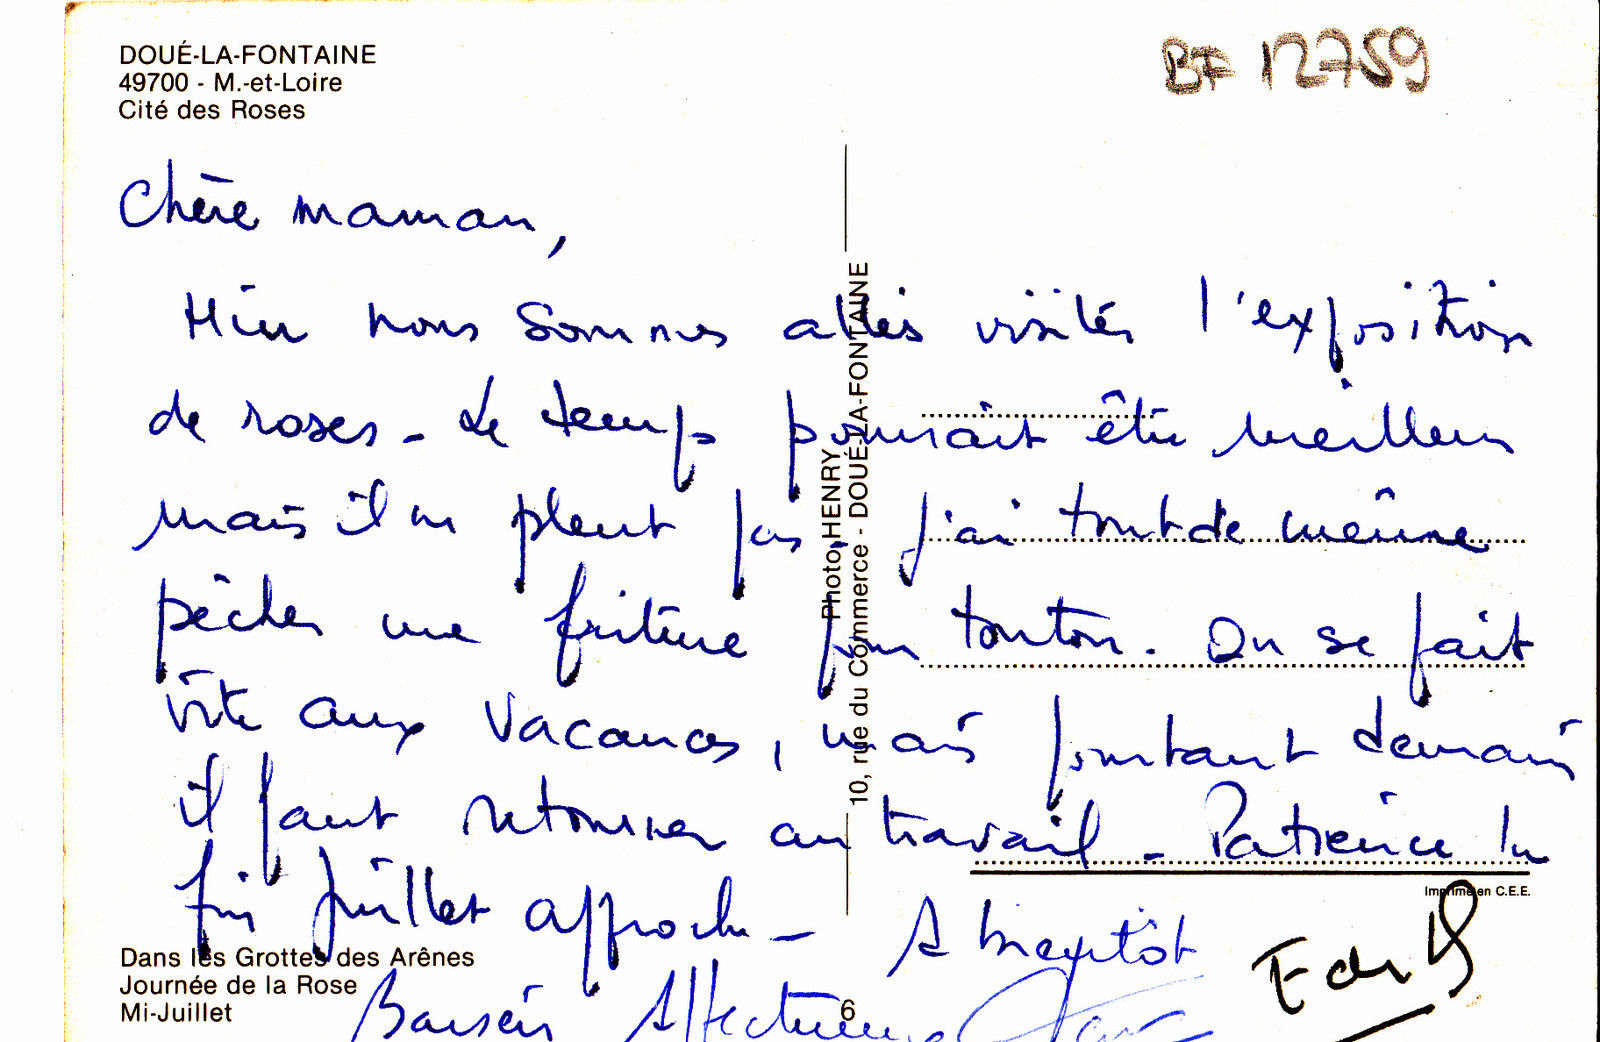 DOUÉ-LA-FONTAINE
49700 - M.-et-Loire
Cité des Roses
BF 12759
Chère maman,
Hier nous sommes allés visités l'exposition
de roses - Le temps pourrait être meilleur
mais il ne pleut pas. J'ai tout de même
pêcher une friture pour tonton. On se fait
vite aux vacances, mais pourtant demain
il faut retourner au travail - Patience la
fin Juillet approche - A bientôt
Baisers Affectueux
Photo HENRY
10, rue du Commerce - DOUÉ-LA-FONTAINE
Imprimé en C.E.E.
Dans les Grottes des Arênes
Journée de la Rose
Mi-Juillet
6